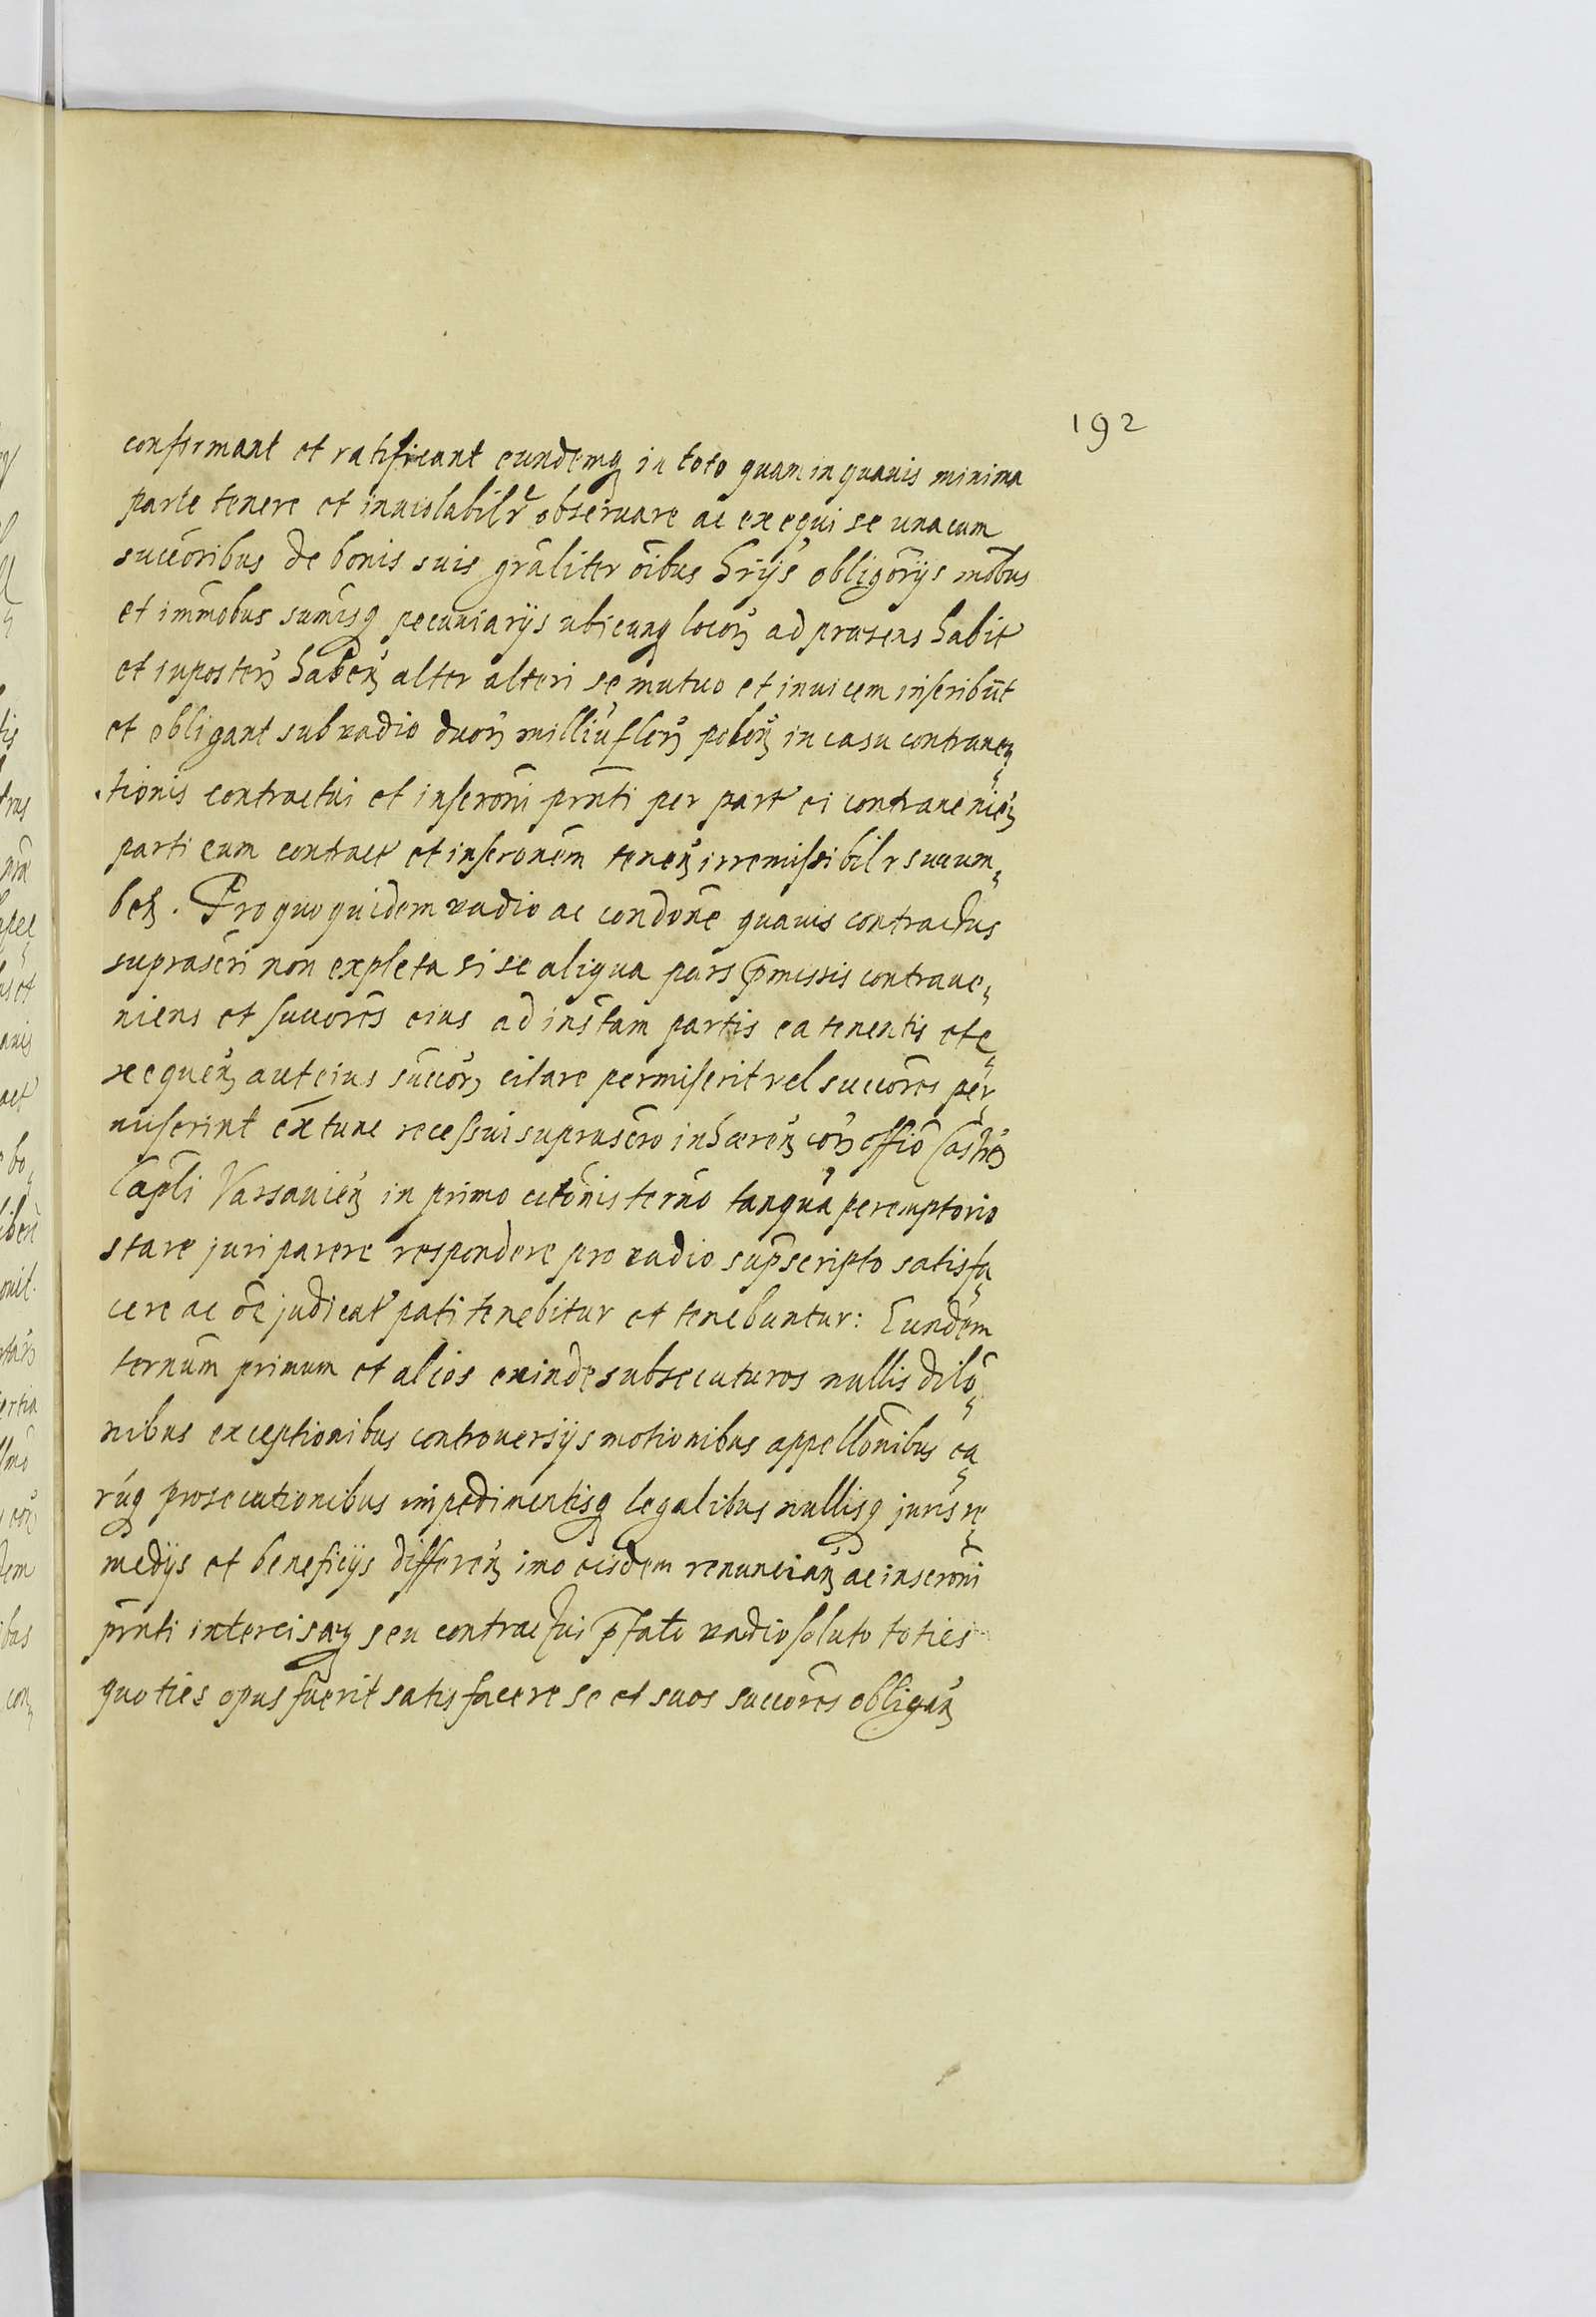 192
confirmant et ratificant eundemq in toto quam in quauis minima
parte tenere et inuiolabilr obseruare ac exequi se unacum
succoribus de bonis suis gnāliter oībus hrijs obligōrijs mōbus
et immōbus summisq pecuniarijs ubicunq locorʒ ad præsens habit
et inposterʒ habenʒ alter alteri se mutuo et inuicem inscribūt
et obligant sub vadio duorʒ milliū florʒ polonʒ in casu contrauen
tionis contractui et inscrōni prnti per part ei contraueniēʒ
parti eam contract et inscronēm tenenʒ irremissibilr succum
benʒ. Pro quo quidem vadio ac condōne quauis contractus
suprascri non expleta si se aliqua pars pmissis contraue
niens et succorēs eius ad instam partis ea tenentis et e
xequenʒ aut eius succorʒ citare permiserit vel succorēs per
miserint extunc recessui suprascro inhærenʒ corʒ offio Castrēʒ
Capli Varsauienʒ in primo citōnis termō tanquā peremptorio
stare juri parere respondere pro vadio supscripto satisfa
cere ac oē judicat pati tenebitur et tenebuntur: Eundem
ternūm primum et alios exinde subsecuturos nullis dilō
nibus exceptionibus controuersijs motionibus appellōnibus ea
rūq prosecutionibus impedimentisq legalibus nullisq juris re
medijs et beneficijs differenʒ imo eisdem renuncianʒ ac inscrōni
prnti intercisæq seu contractui pfato vadio soluto toties
quoties opus fuerit satisfacere se et suos succorēs obliganʒ